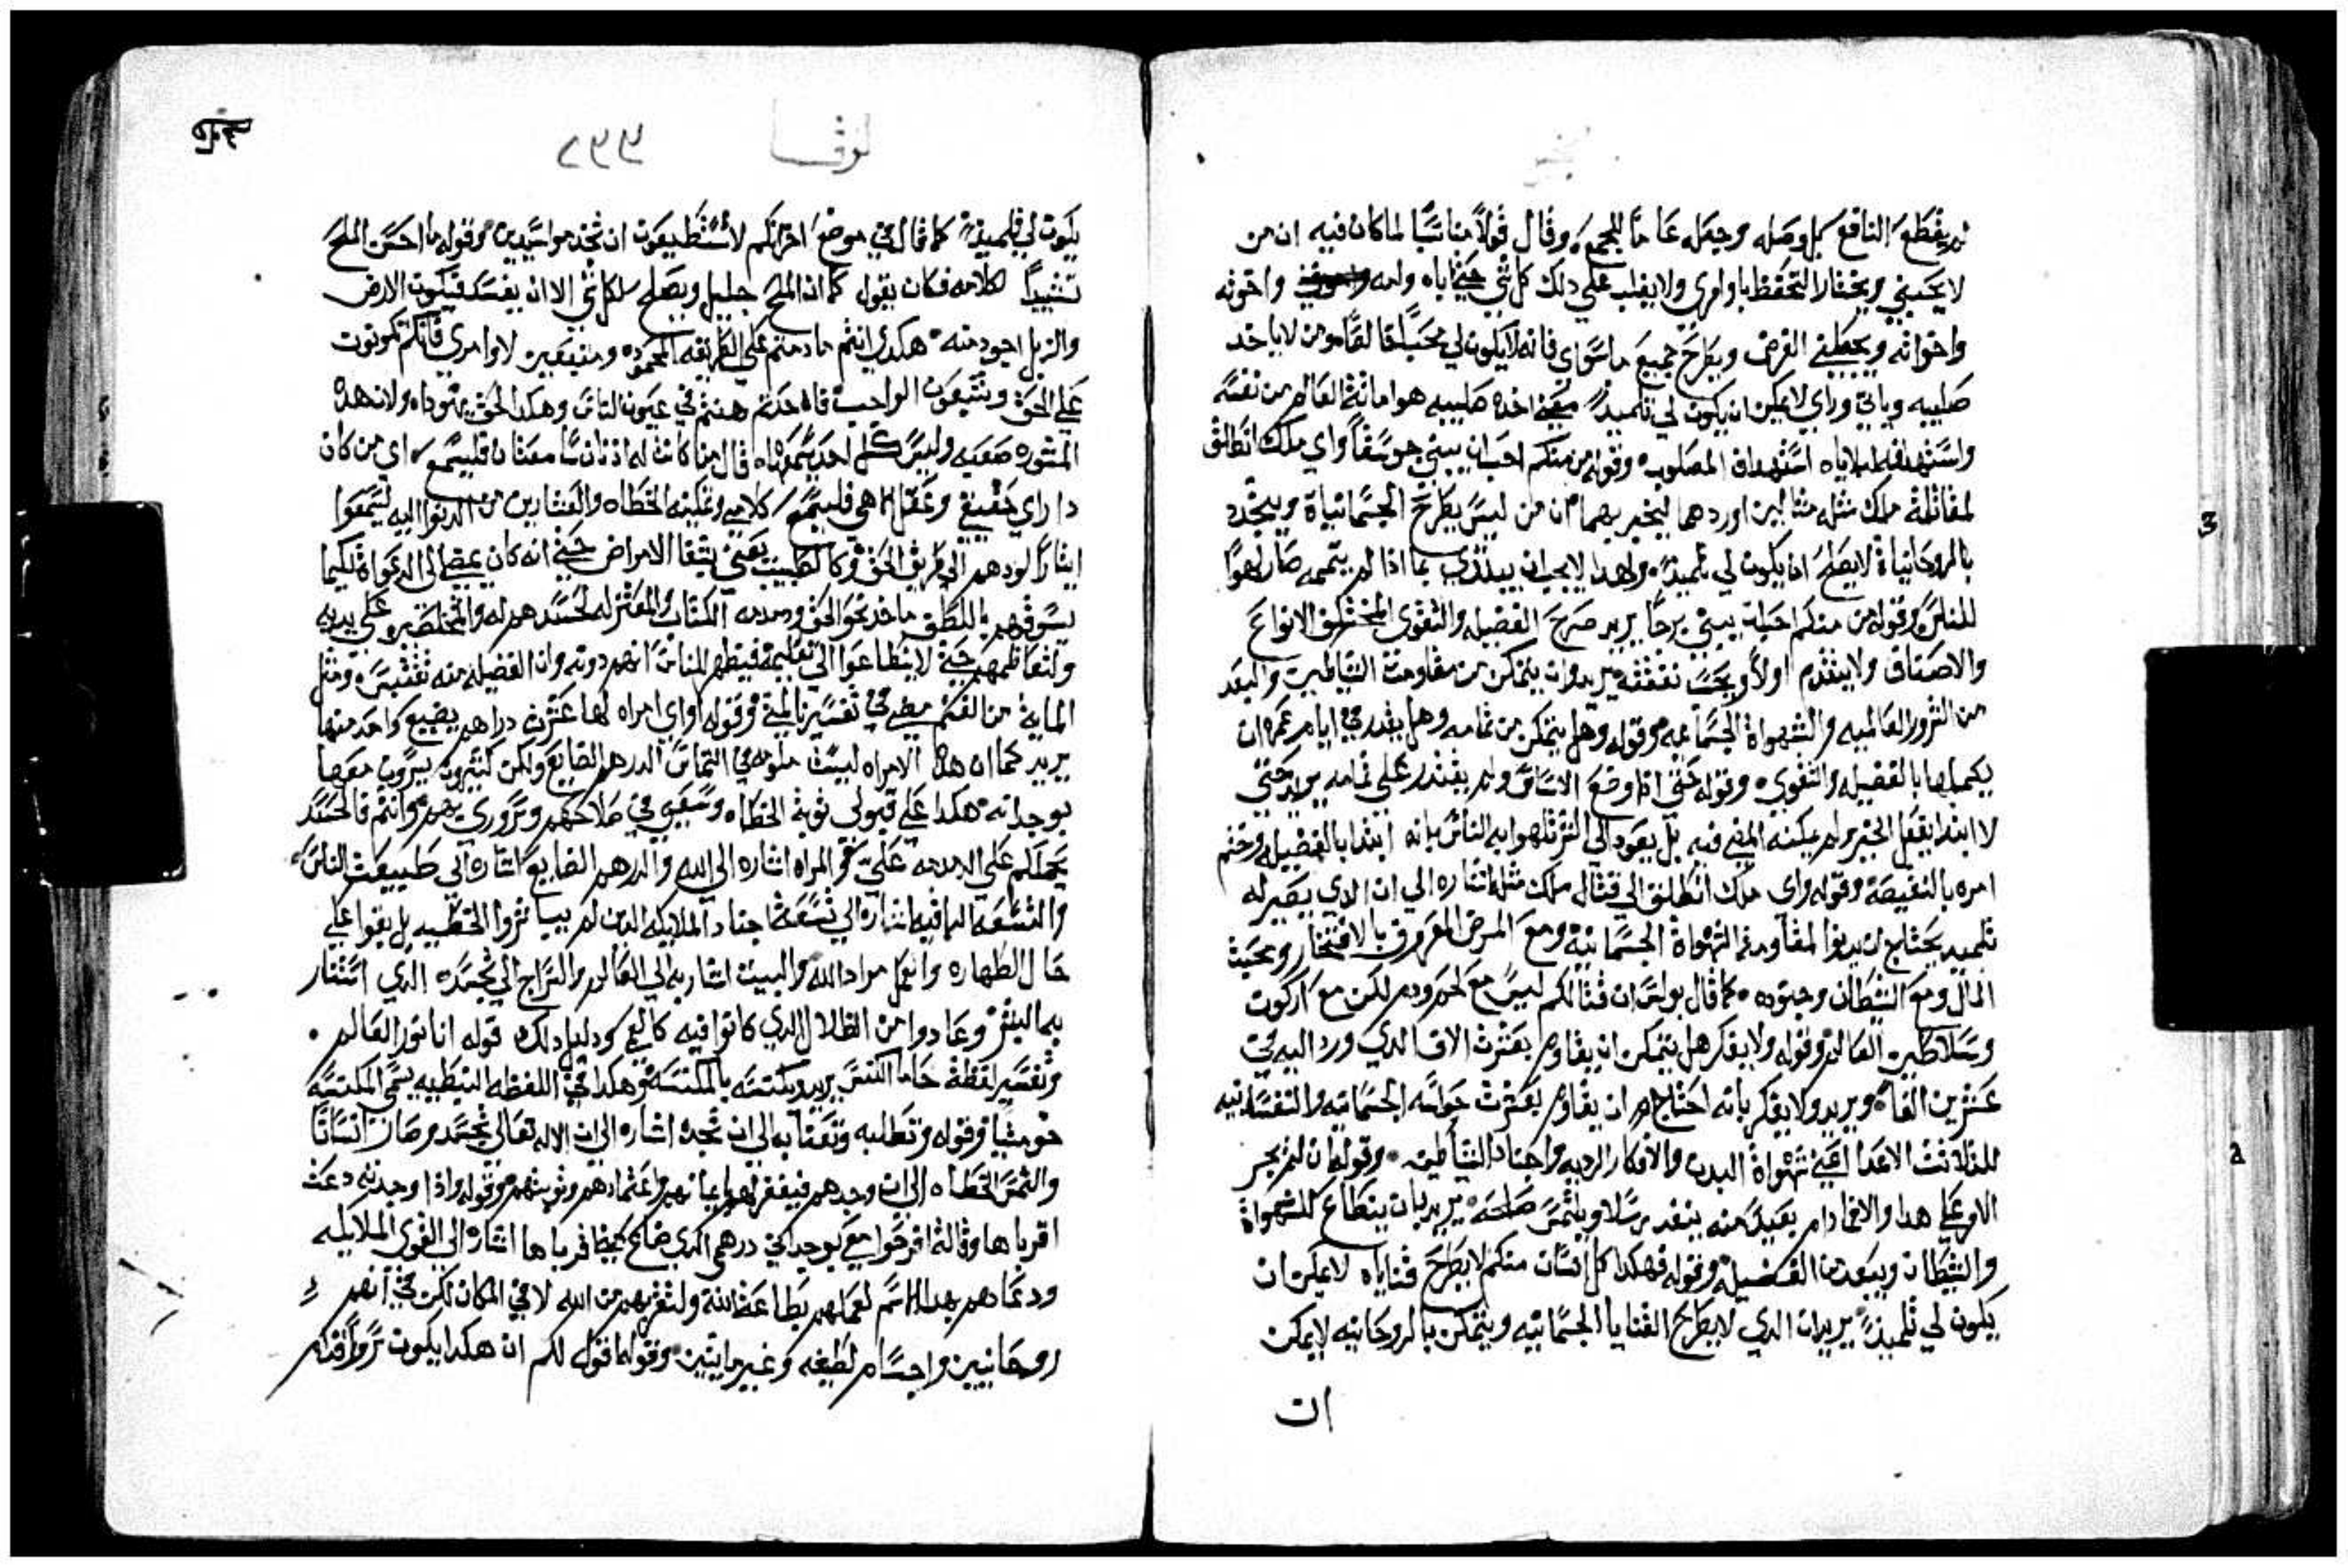 لم يقطع النافع كل وصله وجعله عامًا للجمع وقال قولًا مناسبًا لما كان فيه ان من
لا يحبني ويختار التحفظ باوامري ولا يغلب علي دلك كل شي حتي اباه وامه واخوته
واخواته ويجعلني الغرض ويطرح جميع ماسواي فانه لا يكون لي محبًا ومن لا ياخد
صليبه وياتي وراي لا يمكن ان يكون لي تلميذًا اخده صليبه هو اماتة العالم من نفسه
المصلوب وقوله من منكم احب ان يبني جوسقًا واي ملك انطلق
لمقاتلة ملك مثله مثالين اوردهما ليخبر بهما ان من ليس يطرح الجسمانياة ويتجرد
بالروحانياة لا يصلح ان يكون لي تلميذ ولهدا لا يجب ان يبتدي بما اذا لم يتممه صار لهوًا
للناس وقوله من منكم يبني برجًا يريد صرح الفضيله والتقوي المختلف الانواع
والاصناف ولا يتقدم اولًا ويحسب نفقته يريد وان يتمكن من مقاومت الشياطين والبعد
من الشرور العالميه والشهواة الجسمانيه وقوله وهل يتمكن من تمامه وهل يقدر في ايام عمره ان
يكملها بالفضيله والتقوي وقوله حتي ادا وضع الاساس ولم يقتدر علي تمامه يريد حتي
لا ابتدا بفعل الخير ولم يمكنه المضي فيه بل يعود الي الشر تلهوا به الناس بانه ابتدا بالفضيله وختم
امره بالنقيصة وقوله واي ملك انطلق الي قتال ملك مثله اشاره الي ان الدي يصير له
تلميد يحتاج ان يدنوا لمقاومة الشهواة الجسمانية ومع المرض المعروف بالافتخار ومحبت
المال ومع الشيطان وجنوده كما قال بولس ان قتالكم ليس مع لحم ودم لكن مع اركون
وسلاطين العالم وقوله ولا يفكر هل يتمكن ان يقاوم بعشرت الاف الدي ورد اليه في
عشرين الفًا ويريد ولا يفكر بانه احتاج ان يقاوم بعشرت حواسه الجسمانيه والنفسانيه
الاعدا اعني شهواة البدن والافكار الرديه واجناد الشياطين وقوله ان لم يجر
الامر علي هدا والا فما دام بعيدًا منه ينفد رسلًا ويلتمس صلحه يريد بان ينطاع للشهواة
والشيطان ويبعد من الفضيله وقوله فهكدا كل انسان منكم لا يطرح قناياه لا يمكن ان
يكون لي تلميذًا يريد ان الدي لا يطرح القنايا الجسمانيه ويتمكن بالروحانيه لا يمكن
ان
لوقا ٢٩٩
يكون لي تلميذ كما قال في موضع اخر انكم لا تستطيعون ان تخدموا سيدين وقوله ما احسن الملح
تشبيهًا لكلامه فكان يقول كما ان الملح جليل ويصلح لكل شي الا ان يفسد فيكون الارض
والزبل اجود منه هكدي انتم ما دمتم علي الطريقه المحموده ومتبعين لاوامري فانكم تكونون
علي الحق وتتبعون الواجب فان حدتم هنتم في عيون الناس وهكدا الحق يهودا ولان هده
المشوره صعبه وليس كل احد يسمعها قال من كانت له اذنان سامعتان فليسمع اي من كان
دا راي حقيقي وعقل الاهي فليسمع كلامي وتمكينه الخطاه والعشارين من الدنوا اليه ليسمعوا
ايثارًا لودهم الي طريق الحق وكالطبيب يعني بشفا الامراض حتي انه كان يمضي الي الدعواة لكيما
يسوقهم باللطف ما خد نحو الحق ودمدمه الكتاب والمعتزله لحسدهم له
ولتعاظمهم حتي لا ينطاعوا الي تعليمه فيظهر للناس انهم دونه وان الفضيله منه تقتبس ومثل
الماية من الغنم مضي في تفسير متي وقوله او اي امراه لها عشرت دراهم يضيع واحد منها
يريد كما ان هده الامراه ليست ملومه في التماس الدرهم الضايع ولكن كثيرون يسرون معها
بوجدانه هكدا علي قبولي توبة الخطاه وسعيي في صلاحهم وتزوري بهم وانتم فالحسد
يحملكم علي الدمدمه علي والمراه اشاره الي الله والدرهم الضايع اشاره الي طبيعت الناس
والتسعه الباقيه اشاره الي تسعة اجناد الملايكه الدين لم يباشروا الخطيه بل بقوا علي
حال الطهاره وانعمل مراد الله والبيت اشار به الي العالم والسراج الي تجسده الدي استنار
بها البشر وعادوا من الظلال الدي كانوا فيه ودليل دلك قوله انا نور العالم
وتفسير لفظة حاما الكنس يريد كنسه بالمكنسه وهكدا في اللفظه النبطيه يسمي المكنسه
حومشيا وقوله وتطلبه وتعتنا به الي ان تجده اشاره الي ان الاله تعالي تجسد وصار انسانًا
والتمس الخطاه الي ان وجدهم فيغفر لهم بايمانهم واعتمادهم وتوبتهم وقوله واذا وجدته دعت
اقرباها وقالة افرحوا معي بوجداني درهمي الدي ضاع فرباها اشاره الي القوي الملايكيه
ودعاهم بهدا الاسم لعملهم بطاعة الله ولتقربهم من الله لا في المكان لكن في انهم
روحانيين واجسام لطيفه وغير مايتين وقوله اقول لكم ان هكدا يكون سرور قدام